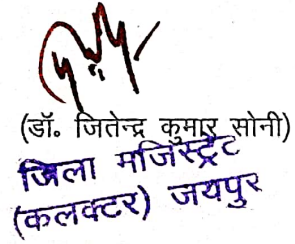 (डॉ० जितेन्द्र कुमार सोनी)
जिला मजिस्ट्रेट
(कलक्टर) जयपुर